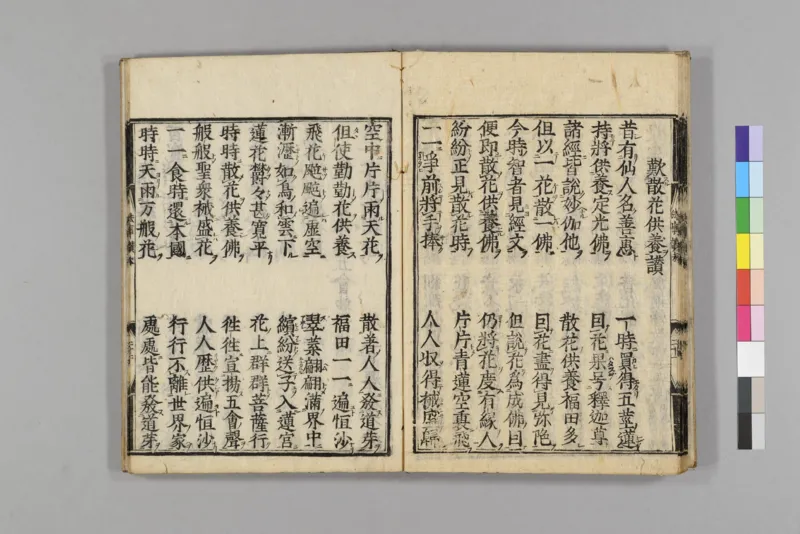 歎散花供養讃
昔有仙人名善惠 一時買得五莖蓮
持將供養定光佛 因花果号釋迦尊
諸經皆說妙伽他 散花供養福田多
但以一花散一佛 因花盡得見弥陀
今時智者見經文 但說花為成佛因
便即散花供養佛 仍將花度有緣人
紛紛正見散花時 片片青蓮空裏飛
一一 前將手捧 人人収得械盛歸
空中片片雨天花 散着人人發道芽
但使勤勤花供養 福田一一遍恒沙
飛花颺颺遍虛空 翠葉翩翩滿界中
漸瀝如為和雲下 繽紛送子入蓮宮
蓮花欝々甚寬平 花上群群菩薩行
時時散花供養佛 往往宣揚五會聲
般般聖衆械盛花 人人歷供遍恒沙
一一食時還本國 行行不離世界家
時時天雨万般花 處處皆能發道芽